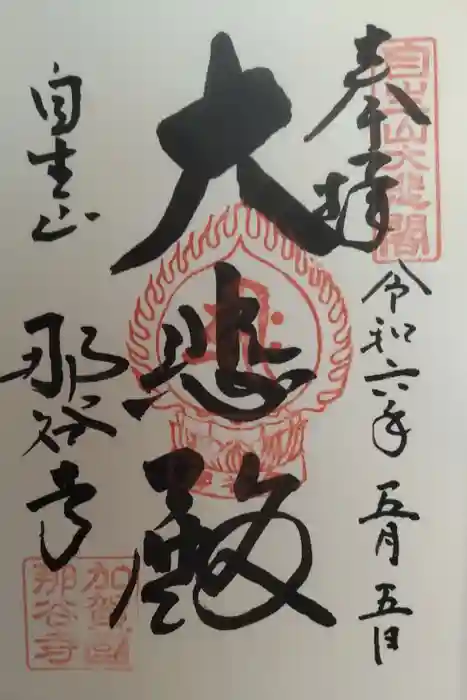 奉拝
令和六年 五月 五日
自生山大悲閣
大悲殿
自生山
那谷寺
加賀國
那谷寺